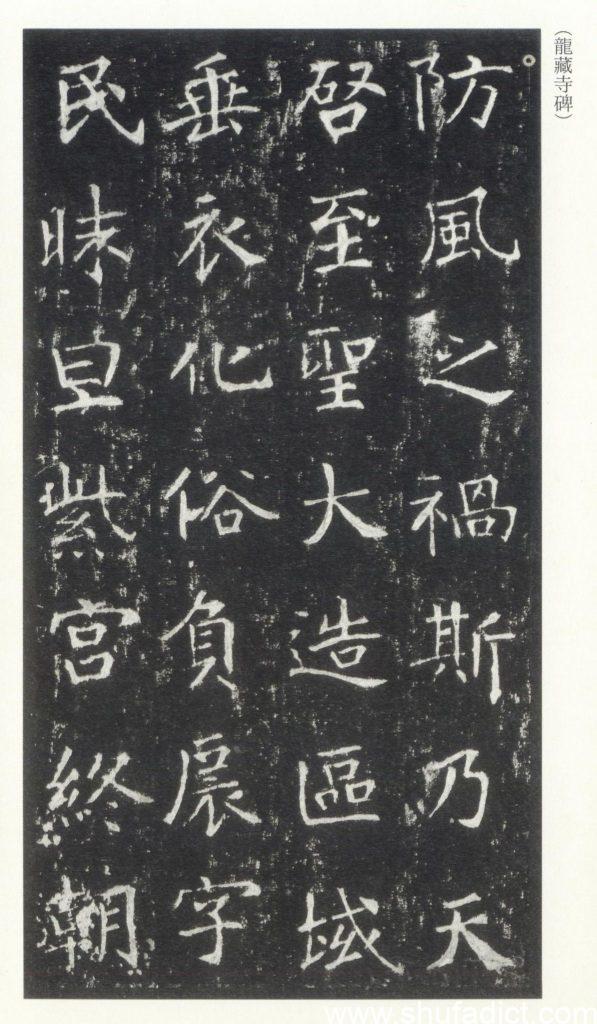 （龍藏寺碑）
防風之禍斯乃天
啓至聖大造區域
垂衣化俗負扆字
民昧旦紫宮終朝
www.shufadict.com